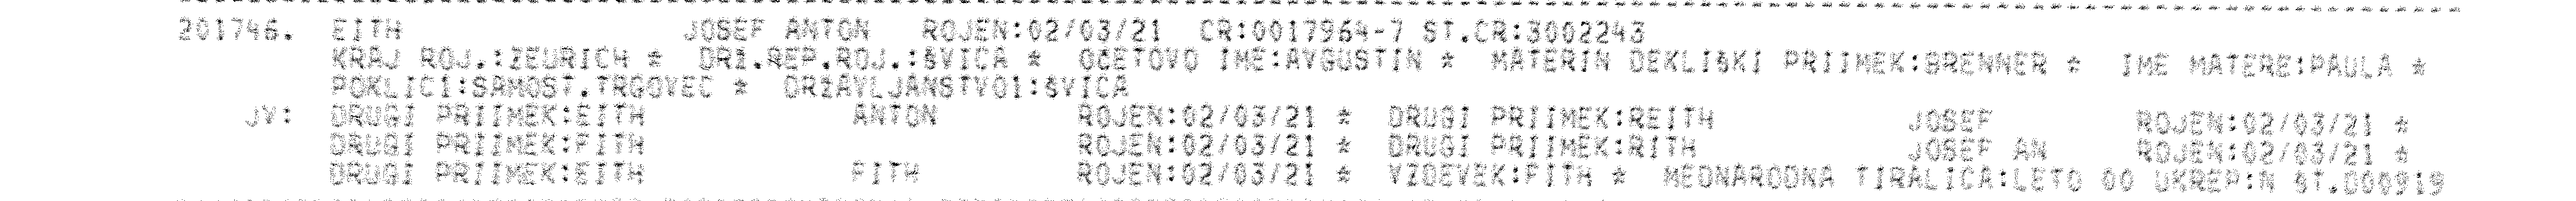 201746. EITH JOSEF ANTON ROJEN:02/03/21 CR:0017964-7 ST.CR:3002243
KRAJ ROJ.:ZEURICH * DRŽ.REP.ROJ.:ŠVICA * OČETOVO IME:AVGUSTIN * MATERIN DEKLIŠKI PRIIMEK:BRENNER * IME MATERE:PAULA *
POKLIC1:SAMOST.TRGOVEC * DRŽAVLJANSTVO1:ŠVICA
JV: DRUGI PRIIMEK:EITH ANTON ROJEN:02/03/21 * DRUGI PRIIMEK:REITH JOSEF ROJEN:02/03/21 *
DRUGI PRIIMEK:FITH ROJEN:02/03/21 * DRUGI PRIIMEK:RITH JOSEF AN ROJEN:02/03/21 *
DRUGI PRIIMEK:EITH FITH ROJEN:02/03/21 * VZDEVEK:FITH * MEDNARODNA TIRALICA:LETO 00 UKREP:N ŠT.D00919